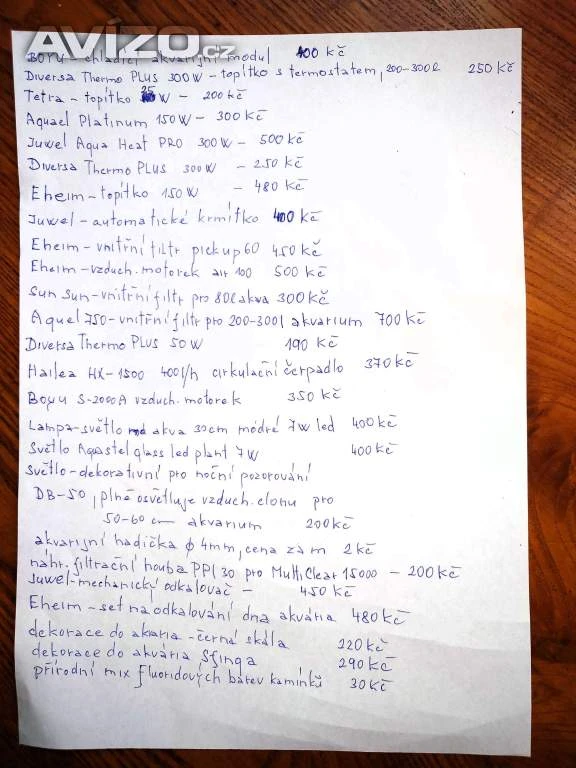 AVÍZO.cz
BOYU - chladící akvarijní modul 400 Kč
Diversa Thermo PLUS 300W - topítko s termostatem, 200-300l 250 Kč
Tetra - topítko 25 W - 200 Kč
Aquael Platinum 150W - 300 Kč
Juwel Aqua Heat PRO 300W - 500 Kč
Diversa Thermo PLUS 300 W - 250 Kč
Eheim - topítko 150 W - 480 Kč
Juwel - automatické krmítko 400 Kč
Eheim - vnitřní filtr pick up 60 450 Kč
Eheim - vzduch. motorek air 100 500 Kč
Sun Sun - vnitřní filtr pro 80l akva 300 Kč
Aquel 750 - vnitřní filtr pro 200-300l akvarium 700 Kč
Diversa Thermo PLUS 50 W 190 Kč
Hailea HX-1500 400l/h cirkulační čerpadlo 370 Kč
Boyu S-2000A vzduch. motorek 350 Kč
Lampa - světlo akva 30cm módré 7W led 400 Kč
Světlo Aquastel glass led plant 7W 400 Kč
Světlo - dekorativní pro noční pozorování
DB-50, plně osvětluje vzduch. clonu pro
50-60 cm akvarium 200 Kč
akvarijní hadička ϕ 4mm, cena za m 2 Kč
náhr. filtrační houba PPI 30 pro MultiClear 15000 - 200 Kč
Juwel - mechanický odkalovač - 450 Kč
Eheim - set na odkalování dna akvária 480 Kč
dekorace do akvaria - černá skála 220 Kč
dekorace do akvária Sfinga 290 Kč
přírodní mix fluoridových barev kamínků 30 Kč